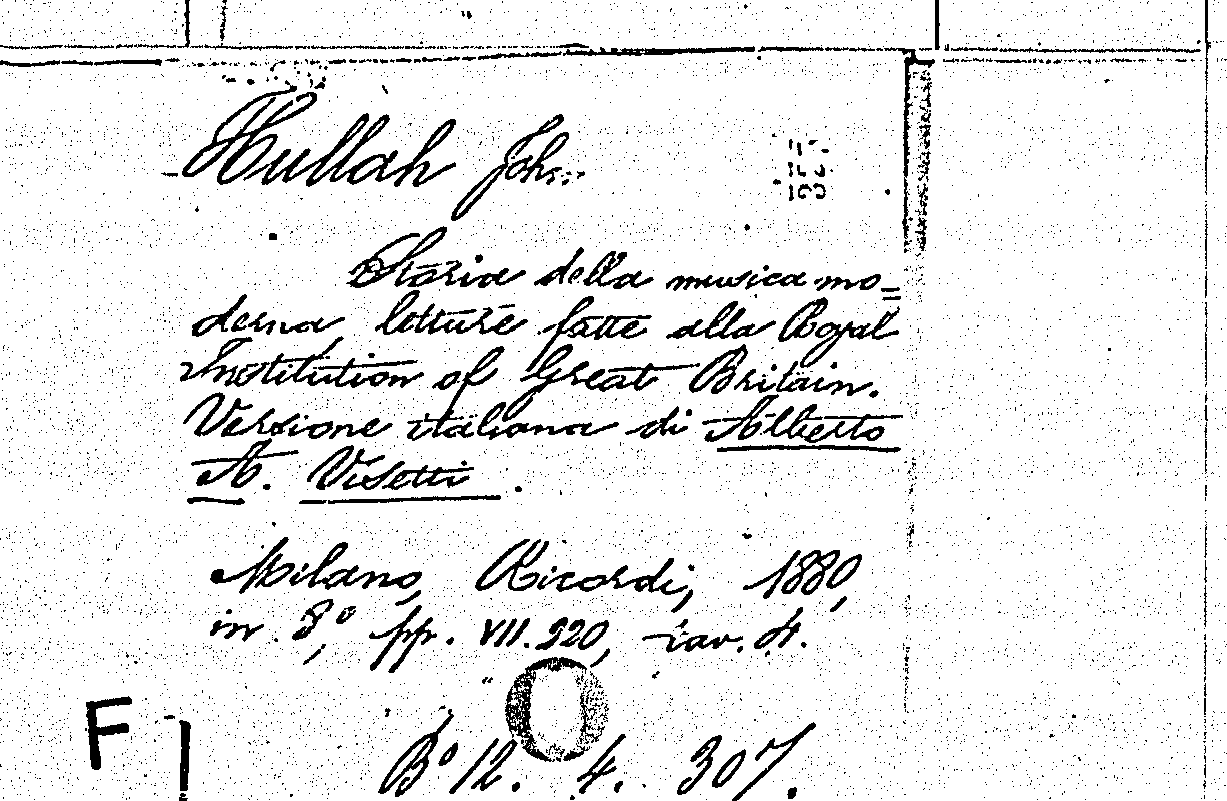 Hullah John
Storia della musica mo=
derna, letture fatte alla Royal
Institution of Great Britain.
Versione italiana di Alberto
A. Visetti.
Milano, Ricordi, 1880,
in 8º, pp. VII.220, tav. 4.
F
Bº 12. 4. 307.